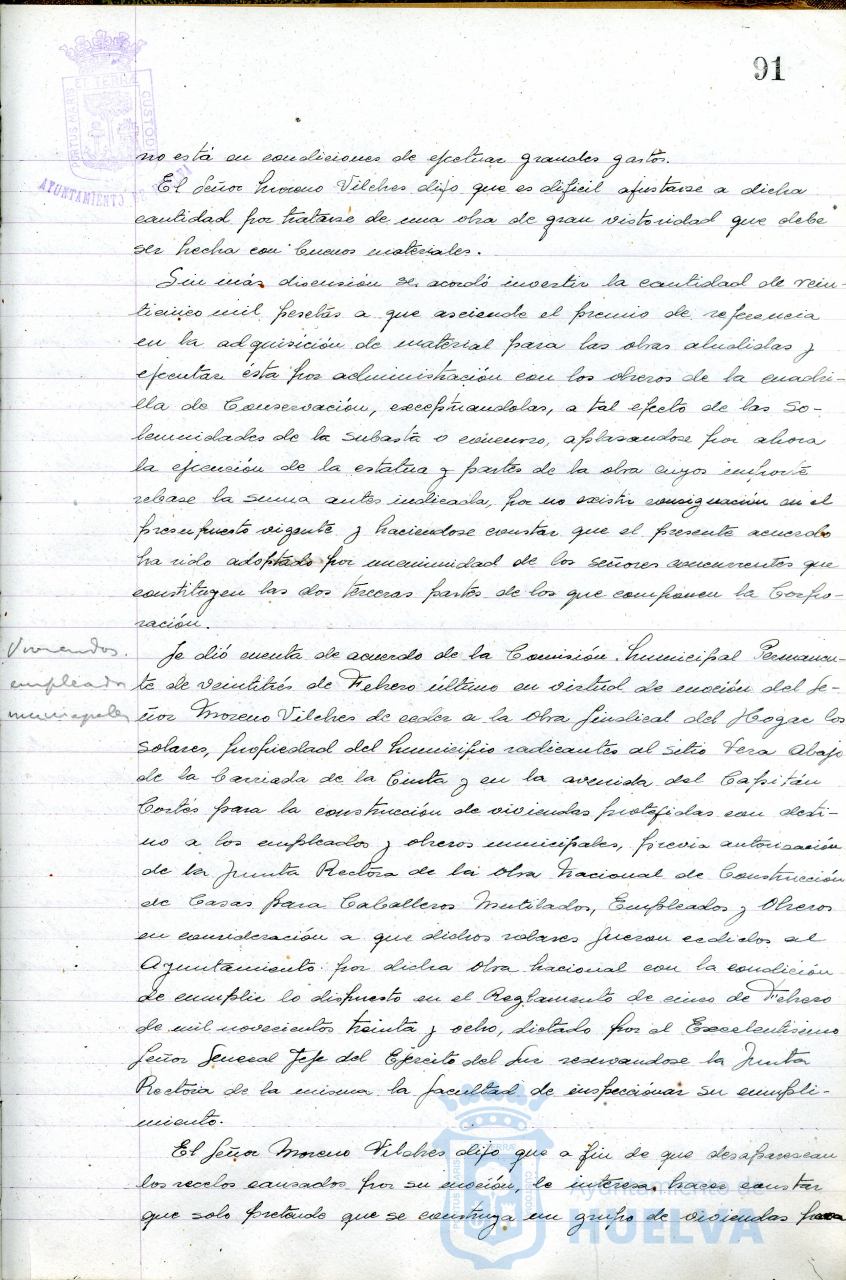 91
PORTUS MARIS ET TERRÆ CUSTODIA
AYUNTAMIENTO DE
no está en condiciones de efectuar grandes gastos.
El Señor Moreno Vilches dijo que es dificil ajustarse a dicha
cantidad por tratarse de una obra de gran vistoridad que debe
ser hecha con buenos materiales.
Sin más discusión se acordó invertir la cantidad de vein-
ticinco mil pesetas a que asciende el premio de referencia
en la adquisición de material para las obras aludidas y
ejecutar ésta por administración con los obreros de la cuadri-
lla de Conservación, exceptuandolas, a tal efecto de las so-
lemnidades de la subasta o concurso, aplasandose por ahora
la ejecución de la estatua y partes de la obra cuyos importe
rebase la suma antes indicada, por no existir consignación en el
presupuesto vigente y haciendose constar que el presente acuerdo
ha sido adoptado por unanimidad de los señores concurrentes que
constituyen las dos terceras partes de los que componen la Corpo-
ración.
Viviendas
empleados
municipales
Se dió cuenta de acuerdo de la Comisión Municipal Permanen-
te de veintitrés de Febrero último en virtud de moción del Se-
ñor Moreno Vilches de ceder a la Obra Sindical del Hogar los
solares, propiedad del Municipio radicantes al sitio Vera Abajo
de la barriada de la Cinta y en la avenida del Capitán
Cortés para la construcción de viviendas protegidas con desti-
no a los empleados y obreros municipales, previa autorización
de la Junta Rectora de la Obra Nacional de Construcción
de Casas para Caballeros Mutilados, Empleados y Obreros
en consideración a que dichos solares fueron cedidos al
Ayuntamiento por dicha Obra nacional con la condición
de cumplir lo dispuesto en el Reglamento de cinco de Febrero
de mil novecientos treinta y ocho, dictado por el Excelentisimo
Señor General Jefe del Ejército del Sur reservandose la Junta
Rectora de la misma la facultad de inspeccionar su cumpli-
miento.
El Señor Moreno Vilches dijo que a fin de que desaparescan
los recelos causados por su moción, le interesa hacer constar
que solo pretende que se construya un grupo de viviendas para
Ayuntamiento de
HUELVA